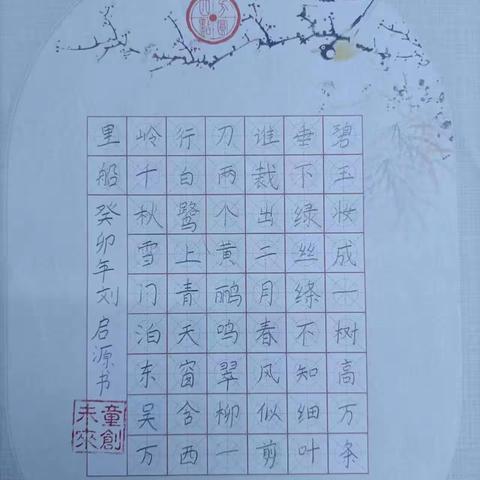 碧玉妆成一树高万条
垂下绿丝绦不知细叶
谁裁出二月春风似剪
刀两个黄鹂鸣翠柳一
行白鹭上青天窗含西
岭千秋雪门泊东吴万
里船癸卯年刘启源书
童創未來